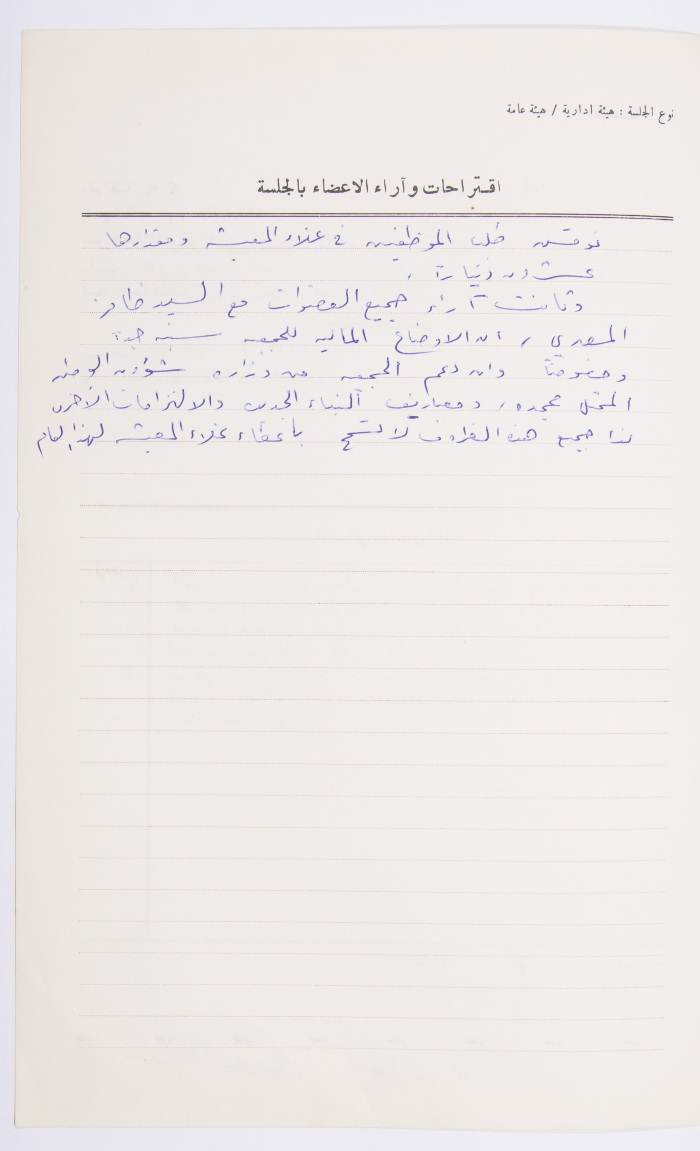 نوع الجلسة : هيئة ادارية / هيئة عامة
اقتراحات وآراء الاعضاء بالجلسة
نوقش طلب الموظفين في غلاء المعيشه ومقدارها
عشرون دينارآ ،
وكانت آراء جميع العضوات مع السيد
المصري ، ان الاوضاع الماليه للجمعيه سيئه جدا
وخصوصًا وان دعم الجمعيه من وزاره شؤون الوطن
المحتل مجمده ، ومصاريف البناء الجديد والالتزامات الأخرى
لذا جميع هذه الظروف لا تسمح باعطاء غلاء المعيشه لهذا العام